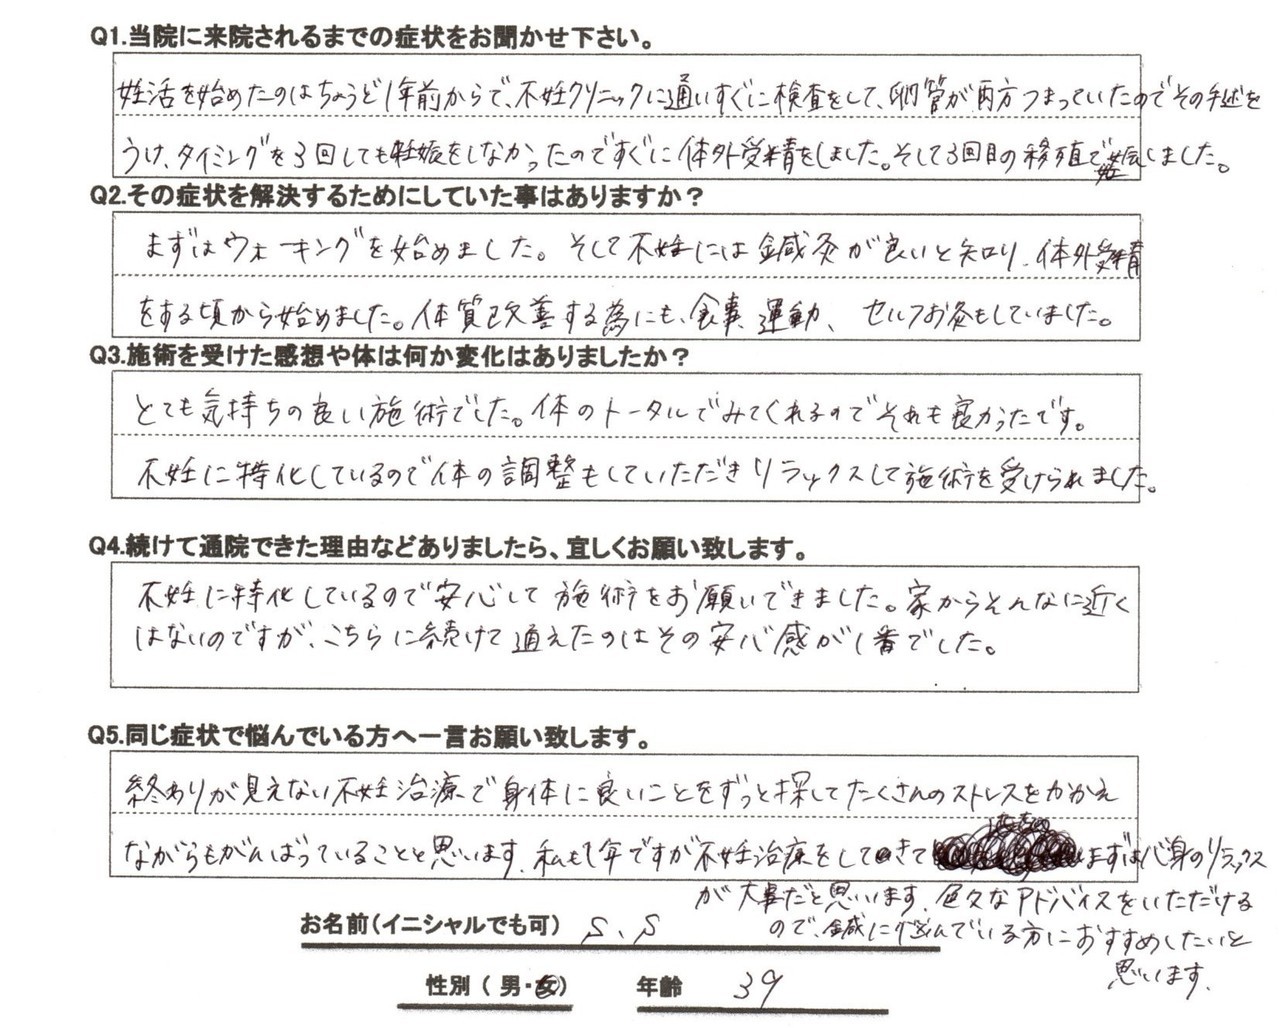 Q1.当院に来院されるまでの症状をお聞かせ下さい。
妊活を始めたのはちょうど1年前からで、不妊クリニックに通いすぐに検査をして、卵管が両方つまっていたのでその手術を
うけ、タイミングを3回しても妊娠をしなかったのですぐに体外受精をしました。そして3回目の移殖で妊娠しました。
Q2.その症状を解決するためにしていた事はありますか？
まずはウォーキングを始めました。そして不妊には鍼灸が良いと知り、体外受精
をする頃から始めました。体質改善する為にも、食事、運動、セルフお灸もしていました。
Q3.施術を受けた感想や体は何か変化はありましたか？
とても気持ちの良い施術でした。体のトータルでみてくれるのでそれも良かったです。
不妊に特化しているので体の調整もしていただきリラックスして施術を受けられました。
Q4.続けて通院できた理由などありましたら、宜しくお願い致します。
不妊に特化しているので安心して施術をお願いできました。家からそんなに近く
はないのですが、こちらに続けて通えたのはその安心感が1番でした。
Q5.同じ症状で悩んでいる方へ一言お願い致します。
終わりが見えない不妊治療で身体に良いことをずっと探してたくさんのストレスをかかえ
ながらもがんばっていることと思います。私も1年ですが不妊治療をしてきてまずは心身のリラックス
が大事だと思います。色々なアドバイスをいただける
ので、鍼に悩んでいる方におすすめしたいと
思います。
お名前(イニシャルでも可) S、S
性別（ 男・女） 年齢 39